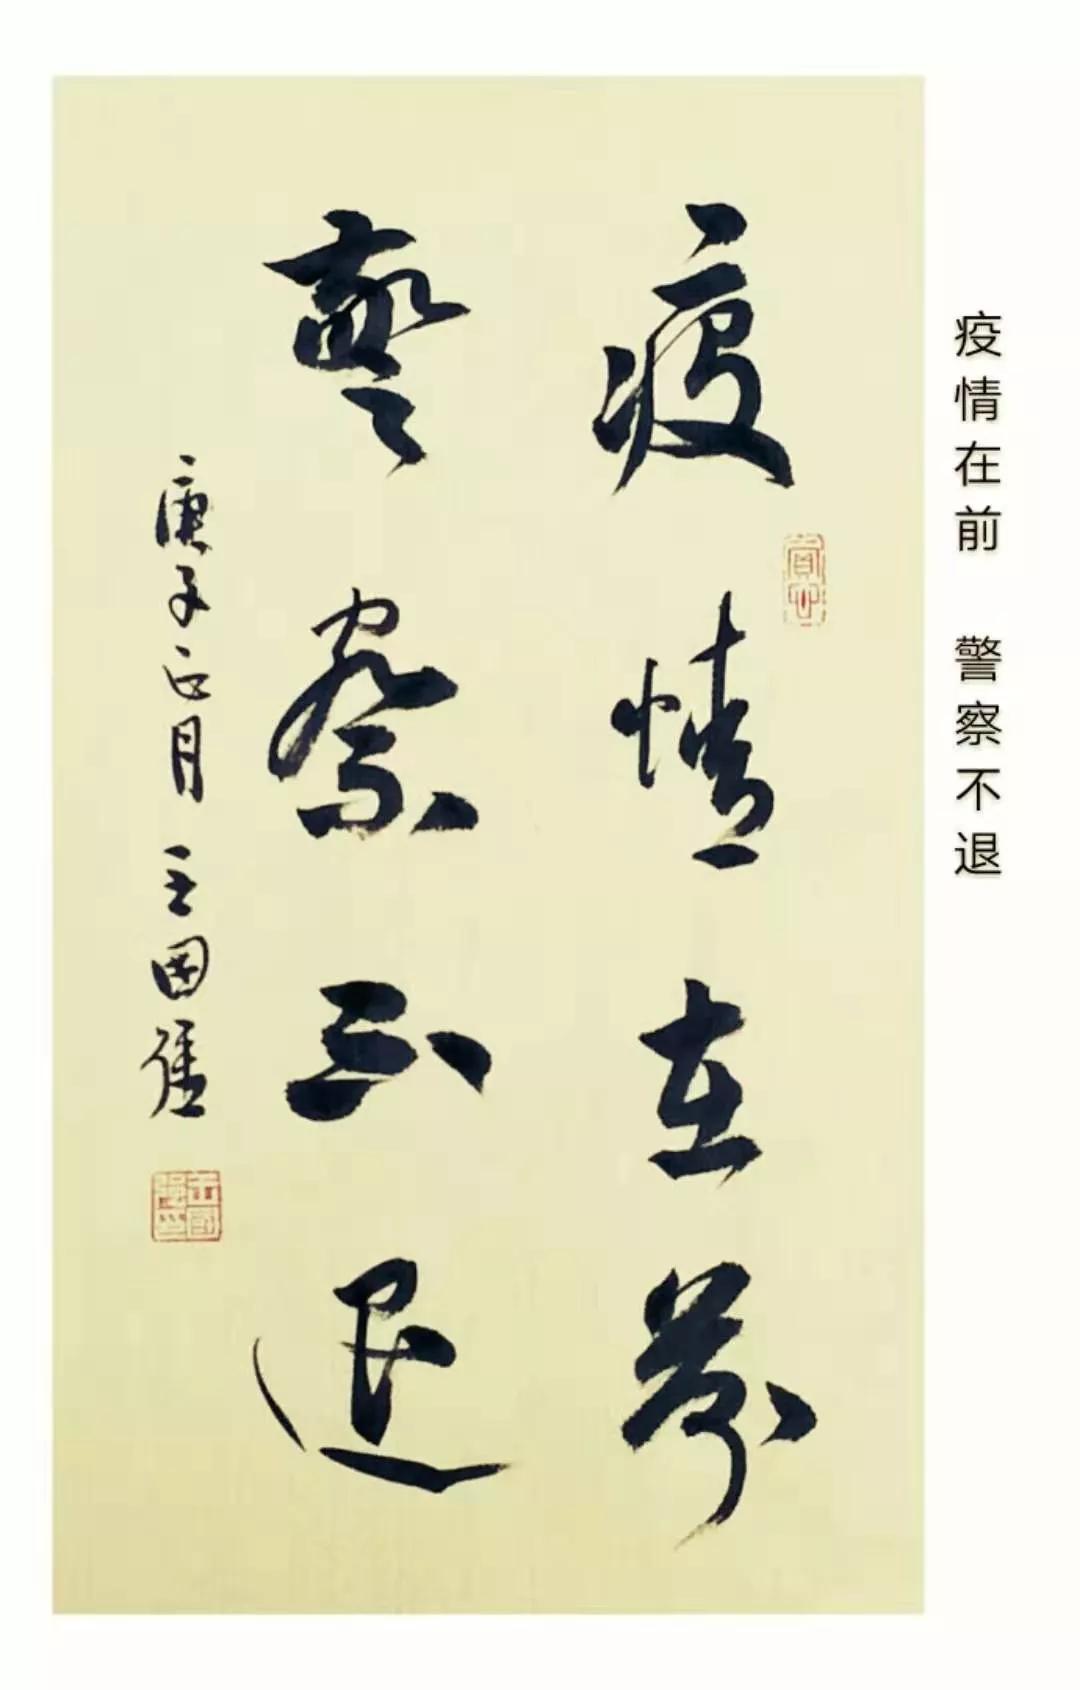 疫情在前 警察不退
疫情在前
警察不退
庚子正月 王国强